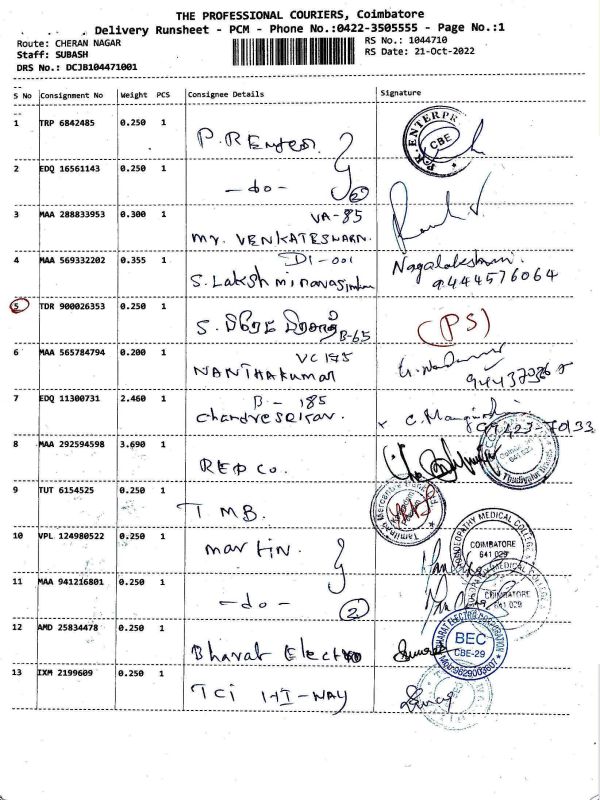 THE PROFESSIONAL COURIERS, Coimbatore
Delivery Runsheet - PCM - Phone No.:0422-3505555 - Page No.:1
Route: CHERAN NAGAR
Staff: SUBASH
DRS No.: DCJB104471001
RS No.: 1044710
RS Date: 21-Oct-2022
S No Consignment No Weight PCS Consignee Details Signature
1 TRP 6842485 0.250 1 P.R Enter.
P.R. ENTERPR
CBE
2 EDQ 16561143 0.250 1 -do- 2
VA-85
3 MAA 288833953 0.300 1 Mr. VENKATESWARN.
D1-001
4 MAA 569332202 0.355 1 S. Lakshminarasimhan Nagalakshmi.
9444576064
5 TDR 900026353 0.250 1 S. பிரேம் பிரசாத் B-65 (PS)
VC 175
6 MAA 565784794 0.200 1 NANTHAKUMAR
B-185
7 EDQ 11300731 2.460 1 Chandresekar.
8 MAA 292594598 3.690 1 REPCO.
Thudiyalur Branch
9 TUT 6154525 0.250 1 TMB.
Tamilnad Mercantile
10 VPL 124980522 0.250 1 Martin.
HOMOEOPATHY MEDICAL COLLEGE &
COIMBATORE
641 029
11 MAA 941216801 0.250 1 -do- 2
OPATHY MEDICAL COLLEGE
COIMBATORE
641 029
12 AMD 25834478 0.250 1 Bharat Electro
BHARAT ELECTRO CORPORATION
BEC
CBE-29
13 IXM 2199609 0.250 1 TCI HI-WAY